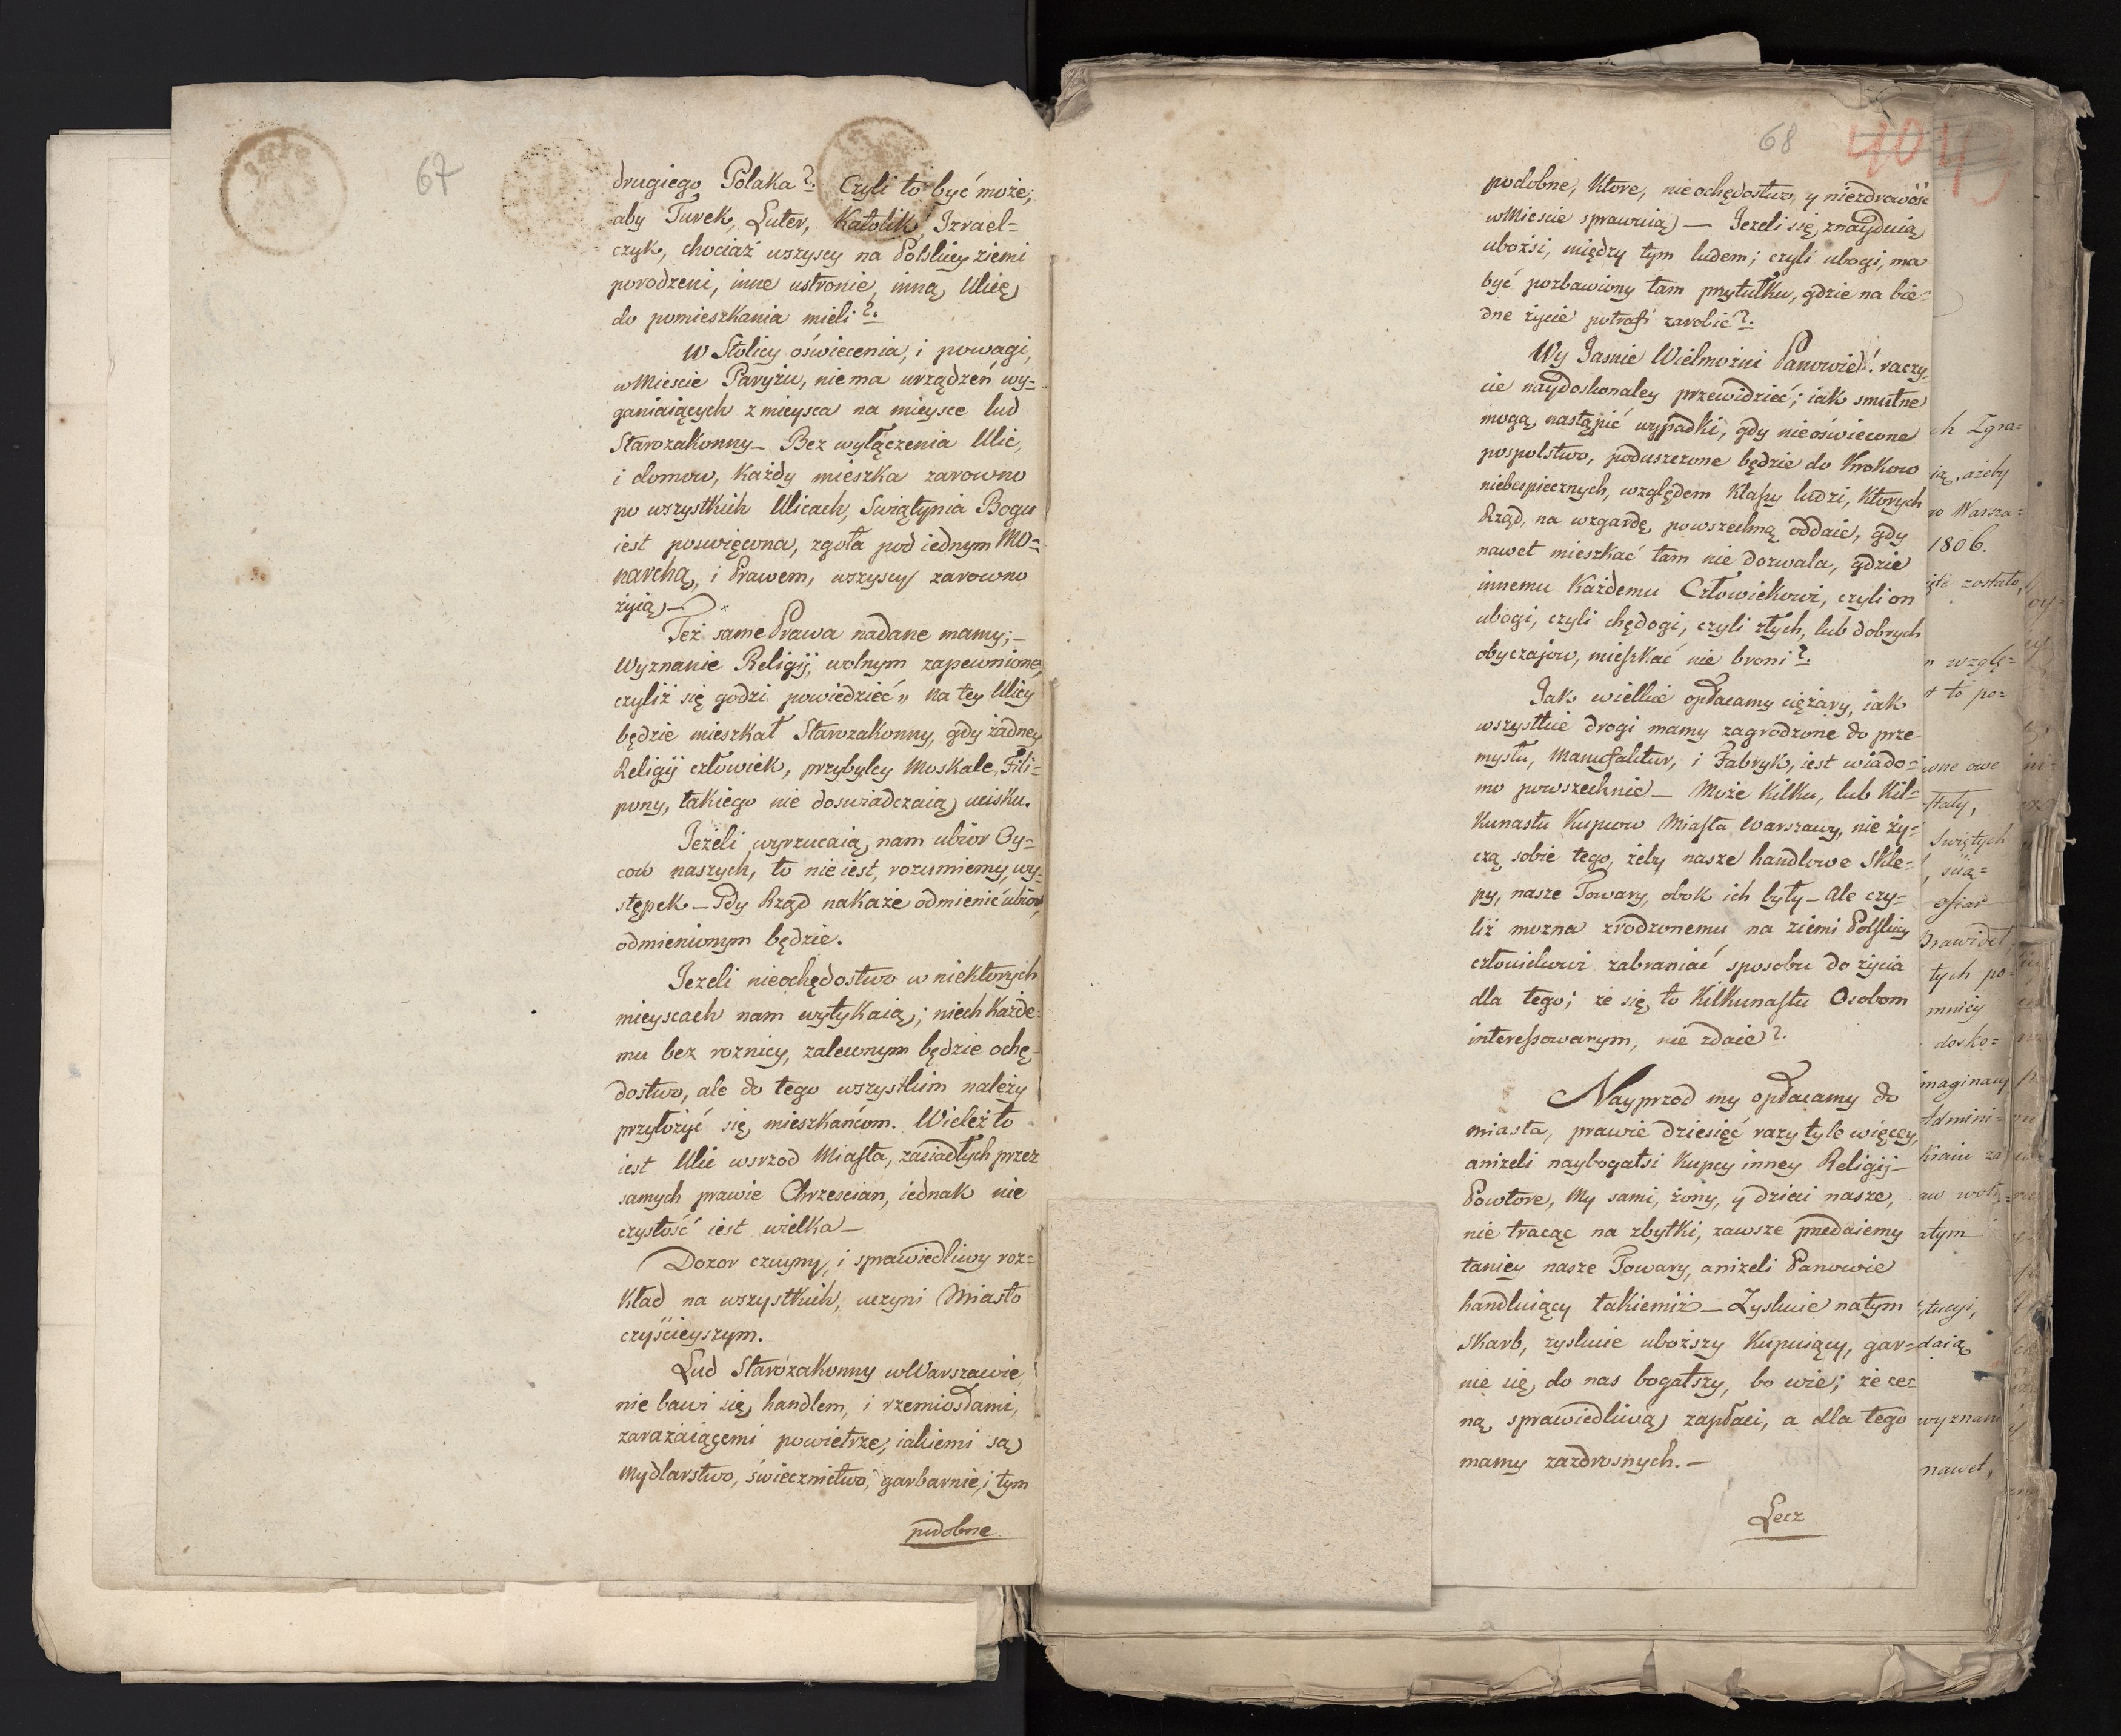 67
drugiego Polaka?. Czyli to być może;
aby Turek, Luter, Katolik, Izrael=
czyk, chociaż wszyscy na Polskiey ziemi
porodzeni, inne ustronie, inną Ulicę
do pomieszkania mieli?.
W Stolicy oświecenia, i powagi,
w Mieście Paryżu, niema urządzeń wy=
ganiaiących z mieysca na mieysce lud
Starozakonny – Bez wyłączenia Ulic,
i domow, każdy mieszka zarowno
po wszystkich Ulicach, Swiątynia Bogu
iest poswięcona, zgoła pod iednym Mo=
narchą, i Prawem, wszyscy zarowno
żyią –
Też same Prawa nadane mamy; –
Wyznanie Religij, wolnym zapewnione,
czyliż się godzi powiedzieć „ na tey Ulicy
będzie mieszkał Starozakonny, gdy żadney
Religij człowiek, przybylcy Moskale, Fili=
pony, takiego nie doswiadczaią ucisku.
Jeżeli wyrzucaią nam ubior Oy=
cow naszych, to nie iest, rozumiemy, wy=
stępek – Gdy Rząd nakaże odmienić ubior,
odmienionym będzie.
Jeżeli nieochędostwo w niektorych
mieyscach nam wytykaią; niech każde=
mu bez roznicy, zalewnym będzie ochę=
dostwo, ale do tego wszystkim należy
przyłożyć się mieszkańcom. Wieleż to
iest Ulic wsrzod Miasta, zasiadłych przez
samych prawie Chrzescian, iednak nie
czystość iest wielka –
Dozor czuyny, i sprawiedliwy roz=
kład na wszystkich, uczyni Miasto
czyścieyszym.
Lud Starozakonny w Warszawie,
nie bawi się handlem, i rzemiosłami,
zarażaiącemi powietrze, iakiemi są
Mydlarstwo, świecznictwo, garbarnie, i tym
podobne
68
podobne, ktore, nieochędostwo, y niezdrowość
w Mieście sprawuią – Jeżeli się znayduią
ubożsi, między tym ludem; czyli ubogi, ma
być pozbawiony tam przytułku, gdzie na bie=
dne życie potrafi zarobić?.
Wy Jasnie Wielmożni Panowie! raczy=
cie naydoskonaley przewidzieć; iak smutne
mogą nastąpić wypadki, gdy nieoświecone
pospolstwo, poduszczone będzie do krokow
niebespiecznych, względem Klassy ludzi, ktorych
Rząd, na wzgardę powszechną oddaie, gdy
nawet mieszkać tam nie dozwala, gdzie
innemu każdemu Człowiekowi, czyli on
ubogi, czyli chędogi, czyli złych, lub dobrych
obyczajow, mieszkać nie broni?.
Jak wielkie opłacamy ciężary, iak
wszystkie drogi mamy zagrodzone do prze=
mysłu, Manufaktur, i Fabryk, iest wiado=
mo powszechnie – Może kilku, lub kil=
kunastu Kupcow Miasta Warszawy, nie ży=
czą sobie tego, żeby nasze handlowe skle=
py, nasze Towary, obok ich były – Ale czy=
liż mozna zrodzonemu na ziemi Polskiey
człowiekowi zabraniać sposobu do życia
dla tego; że się to Kilkunastu Osobom
interessowanym, nie zdaie?.
Nayprzod my opłacamy do
miasta, prawie dziesięć razy tyle więcey,
aniżeli naybogatsi Kupcy inney Religij –
Powtore, My sami, żony, y dzieci nasze,
nie tracąc na zbytki, zawsze przedaiemy
taniey nasze Towary, aniżeli Panowie
handluiący takiemiż – Zyskuie na tym
Skarb, zyskuie uboższy Kupuiący, gar=
nie się do nas bogatszy, bo wie; że ce=
ną sprawiedliwą zapłaci, a dla tego
mamy zazdrosnych. –
Lecz
ch Zgra=
ią, ażeby
Warsza=
1806.
zostało,
wzglę=
to po=
owe
Swiętych
ofiar
tych po=
mniey
dosko=
imaginacy
Admini=
tym
daią
wyznani
nawet,